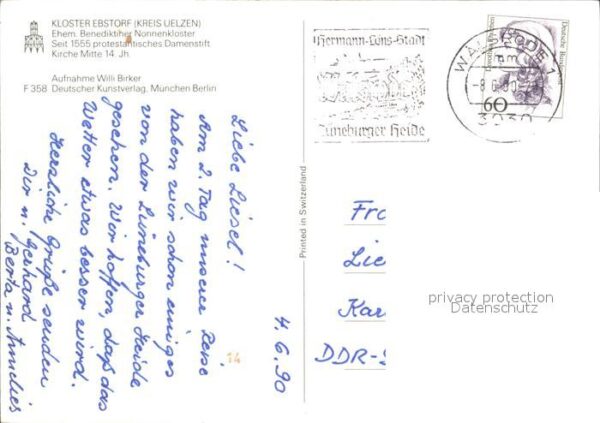 KLOSTER EBSTORF (KREIS UELZEN)
Ehem. Benediktiner Nonnenkloster
Seit 1555 protestantisches Damenstift
Kirche Mitte 14. Jh.
Aufnahme Willi Birker
F 358 Deutscher Kunstverlag, München Berlin
4.6.90
Liebe Liesel!
Am 2. Tag unserer Reise
haben wir schon einiges
von der Lüneburger Heide
gesehen. Wir hoffen, daß das
Wetter etwas besser wird.
Herzliche Grüße senden
Dir u. Gerhard
Berta u. Annelies
14
Printed in Switzerland
Hermann-Löns-Stadt
Lüneburger Heide
WALSRODE 1
3030
Deutsche Bundespost
60
Fra
Lie
Kar
DDR-
privacy protection
Datenschutz